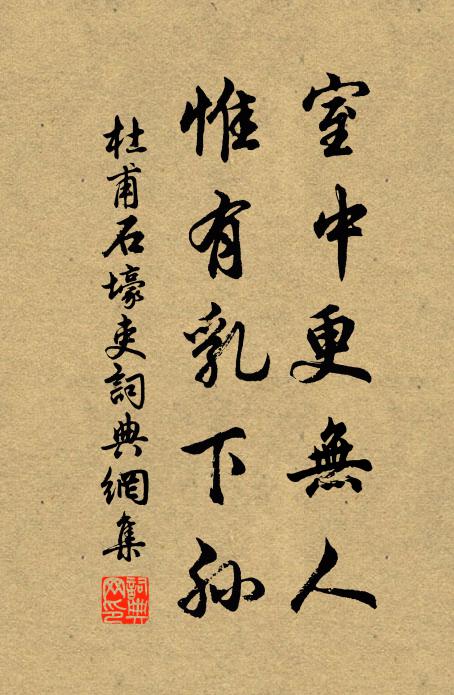 室中更無人
惟有乳下孫
杜甫石壕吏詞典網集
詞典網印